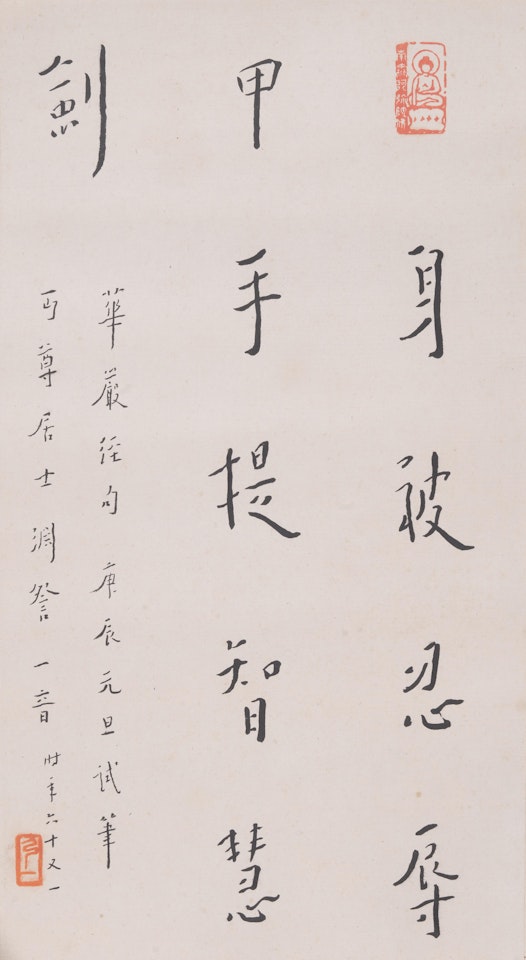 身被忍辱
甲手提智慧
劍
華嚴經句 庚辰元旦試筆
丏尊居士淵詧 一音 時年六十又一